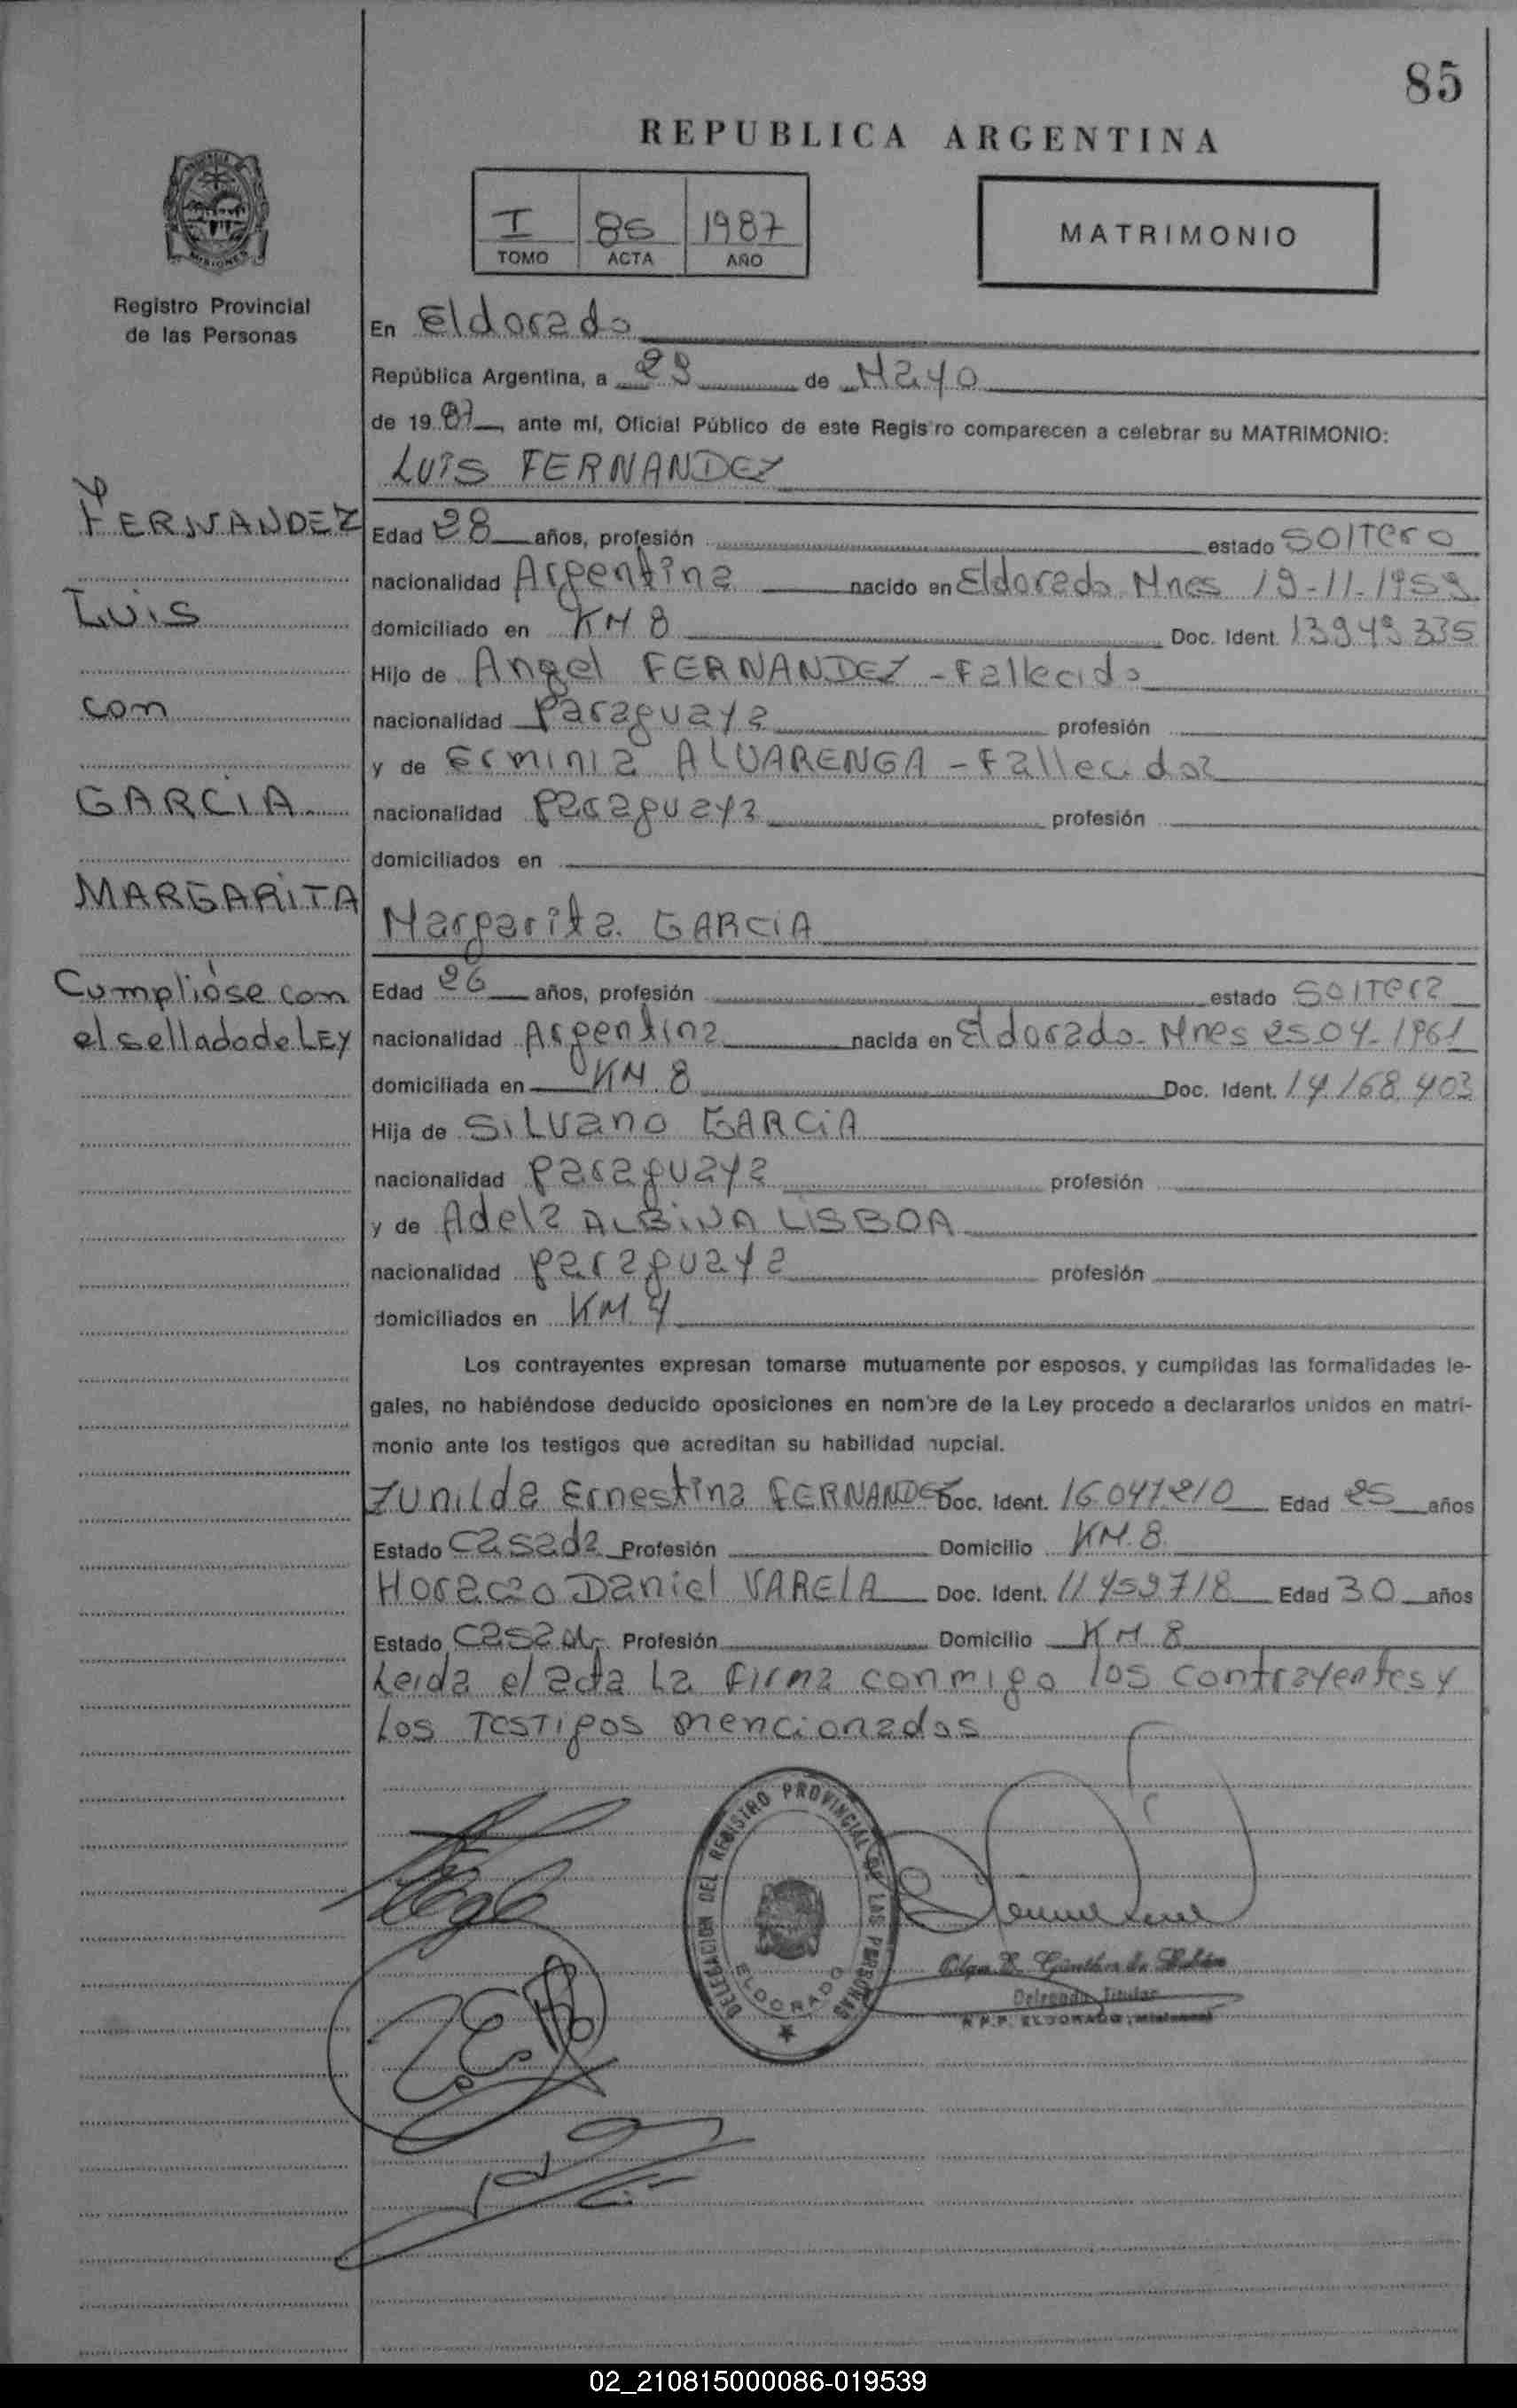 85
REPUBLICA ARGENTINA
I 85 1987
TOMO ACTA AÑO
MATRIMONIO
MISIONES
Registro Provincial
de las Personas
En Eldorado
República Argentina, a 29 de Mayo
de 1987, ante mí, Oficial Público de este Registro comparecen a celebrar su MATRIMONIO:
Luis FERNANDEZ
FERNANDEZ
Luis
con
GARCIA
MARGARITA
Cumplióse con
el sellado de LEY
Edad 28 años, profesión estado Soltero
nacionalidad Argentina nacido en Eldorado Mnes 19-11-1958
domiciliado en KM 8 Doc. Ident. 13949335
Hijo de Angel FERNANDEZ - Fallecido
nacionalidad Paraguaya profesión
y de Erminia ALVARENGA - Fallecida
nacionalidad Paraguaya profesión
domiciliados en
Margarita GARCIA
Edad 26 años, profesión estado Soltera
nacionalidad Argentina nacida en Eldorado - Mnes 25-04-1961
domiciliada en KM 8 Doc. Ident. 14.168.403
Hija de Silvano GARCIA
nacionalidad Paraguaya profesión
y de Adela ALBINA LISBOA
nacionalidad Paraguaya profesión
domiciliados en KM 4
Los contrayentes expresan tomarse mutuamente por esposos, y cumplidas las formalidades le-
gales, no habiéndose deducido oposiciones en nombre de la Ley procedo a declararlos unidos en matri-
monio ante los testigos que acreditan su habilidad nupcial.
Zunilda Ernestina FERNANDEZ Doc. Ident. 16047210 Edad 25 años
Estado Casada Profesión Domicilio KM.8
Horacio Daniel VARELA Doc. Ident. 11459718 Edad 30 años
Estado Casado Profesión Domicilio KM 8
Leida el acta La firma conmigo los contrayentes y
los Testigos mencionados
DELEGACION DEL REGISTRO PROVINCIAL DE LAS PERSONAS
ELDORADO
Delegada Titular
R.P.P. ELDORADO (Misiones)
02_210815000086-019539